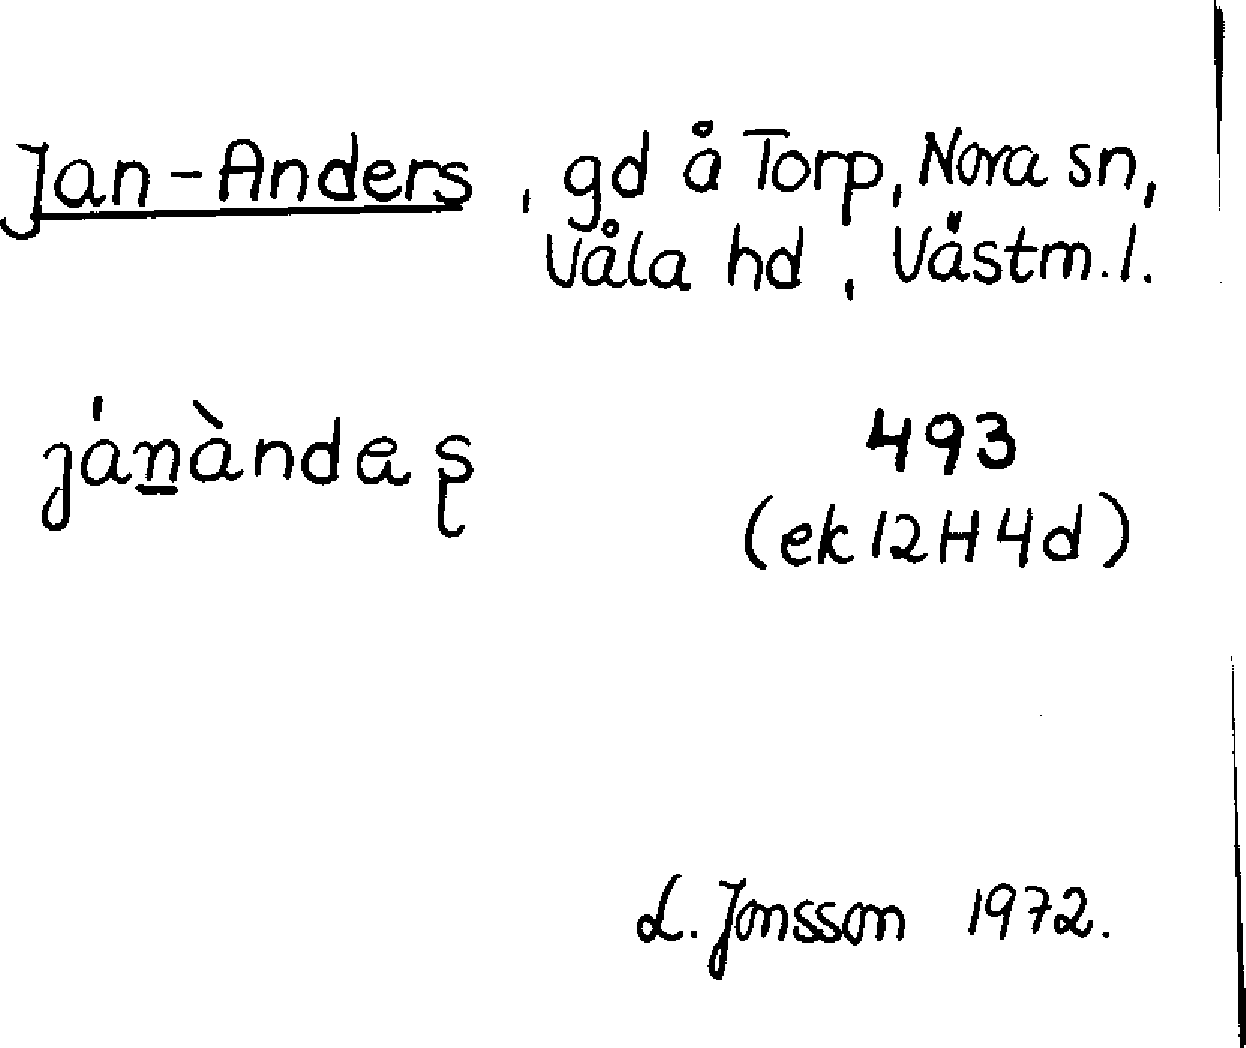 Jan-Anders, gd å Torp, Nora sn,
Våla hd, Västm. l.
ján̲àndeʂ 493
(ek 12H4d)
L. Jonsson 1972.